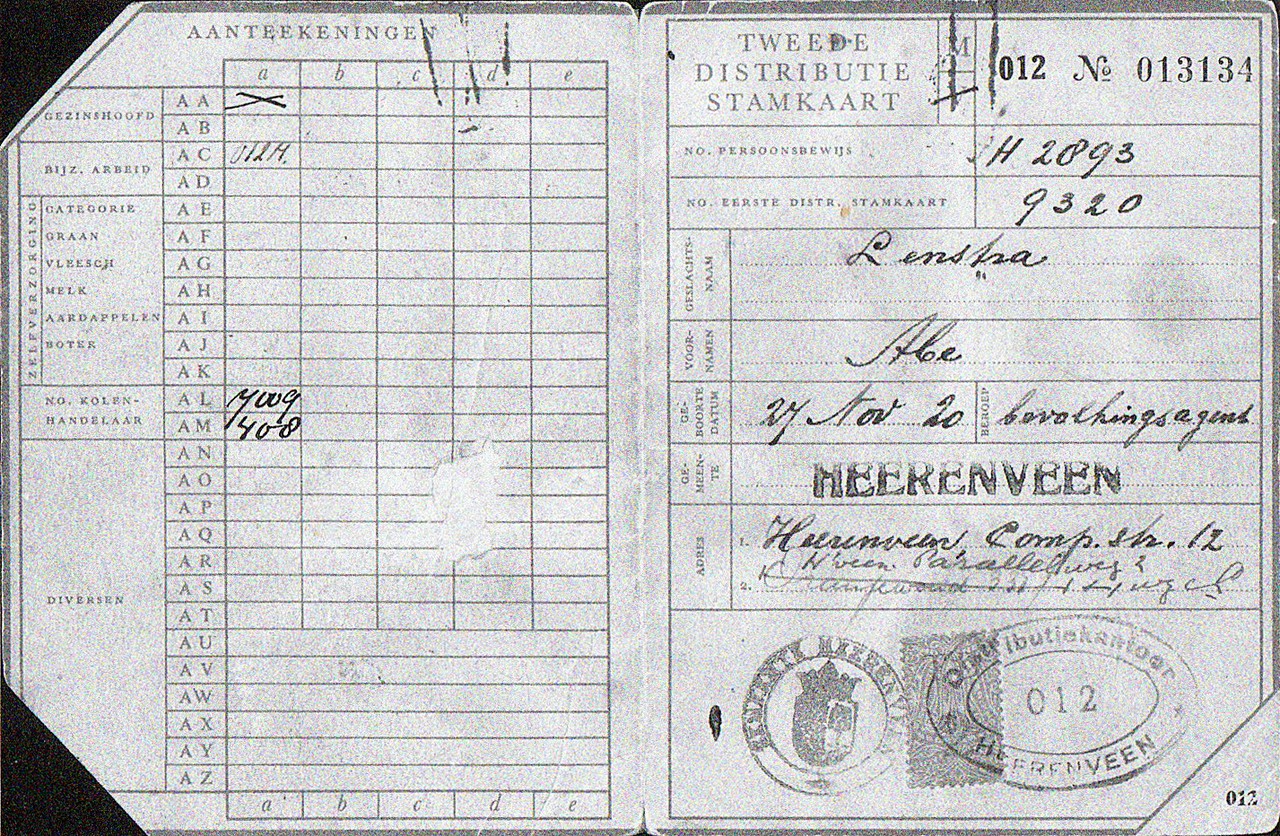 AANTEEKENINGEN
a b c d e
GEZINSHOOFD
AA
AB
BIJZ. ARBEID
AC 012M.
AD
ZELFVERZORGING
CATEGORIE AE
GRAAN AF
VLEESCH AG
MELK AH
AARDAPPELEN AI
BOTER AJ
AK
NO. KOLEN-
HANDELAAR
AL 7009
AM 408
AN
AO
AP
AQ
AR
AS
DIVERSEN
AT
AU
AV
AW
AX
AY
AZ
a b c d e
TWEEDE
DISTRIBUTIE
STAMKAART
M
012 № 013134
NO. PERSOONSBEWIJS H 2893
NO. EERSTE DISTR. STAMKAART 9320
GESLACHTS-
NAAM
Lenstra
VOOR-
NAMEN
Abe
GE-
BOORTE
DATUM
27 Nov 20
BEROEP
bevolkingsagent
GE-
MEEN-
TE
HEERENVEEN
ADRES
1. Heerenveen, Comp. str. 12
H'veen Parallelweg
2.
GEMEENTE HEERENVEEN
Distributiekantoor
012
HEERENVEEN
012